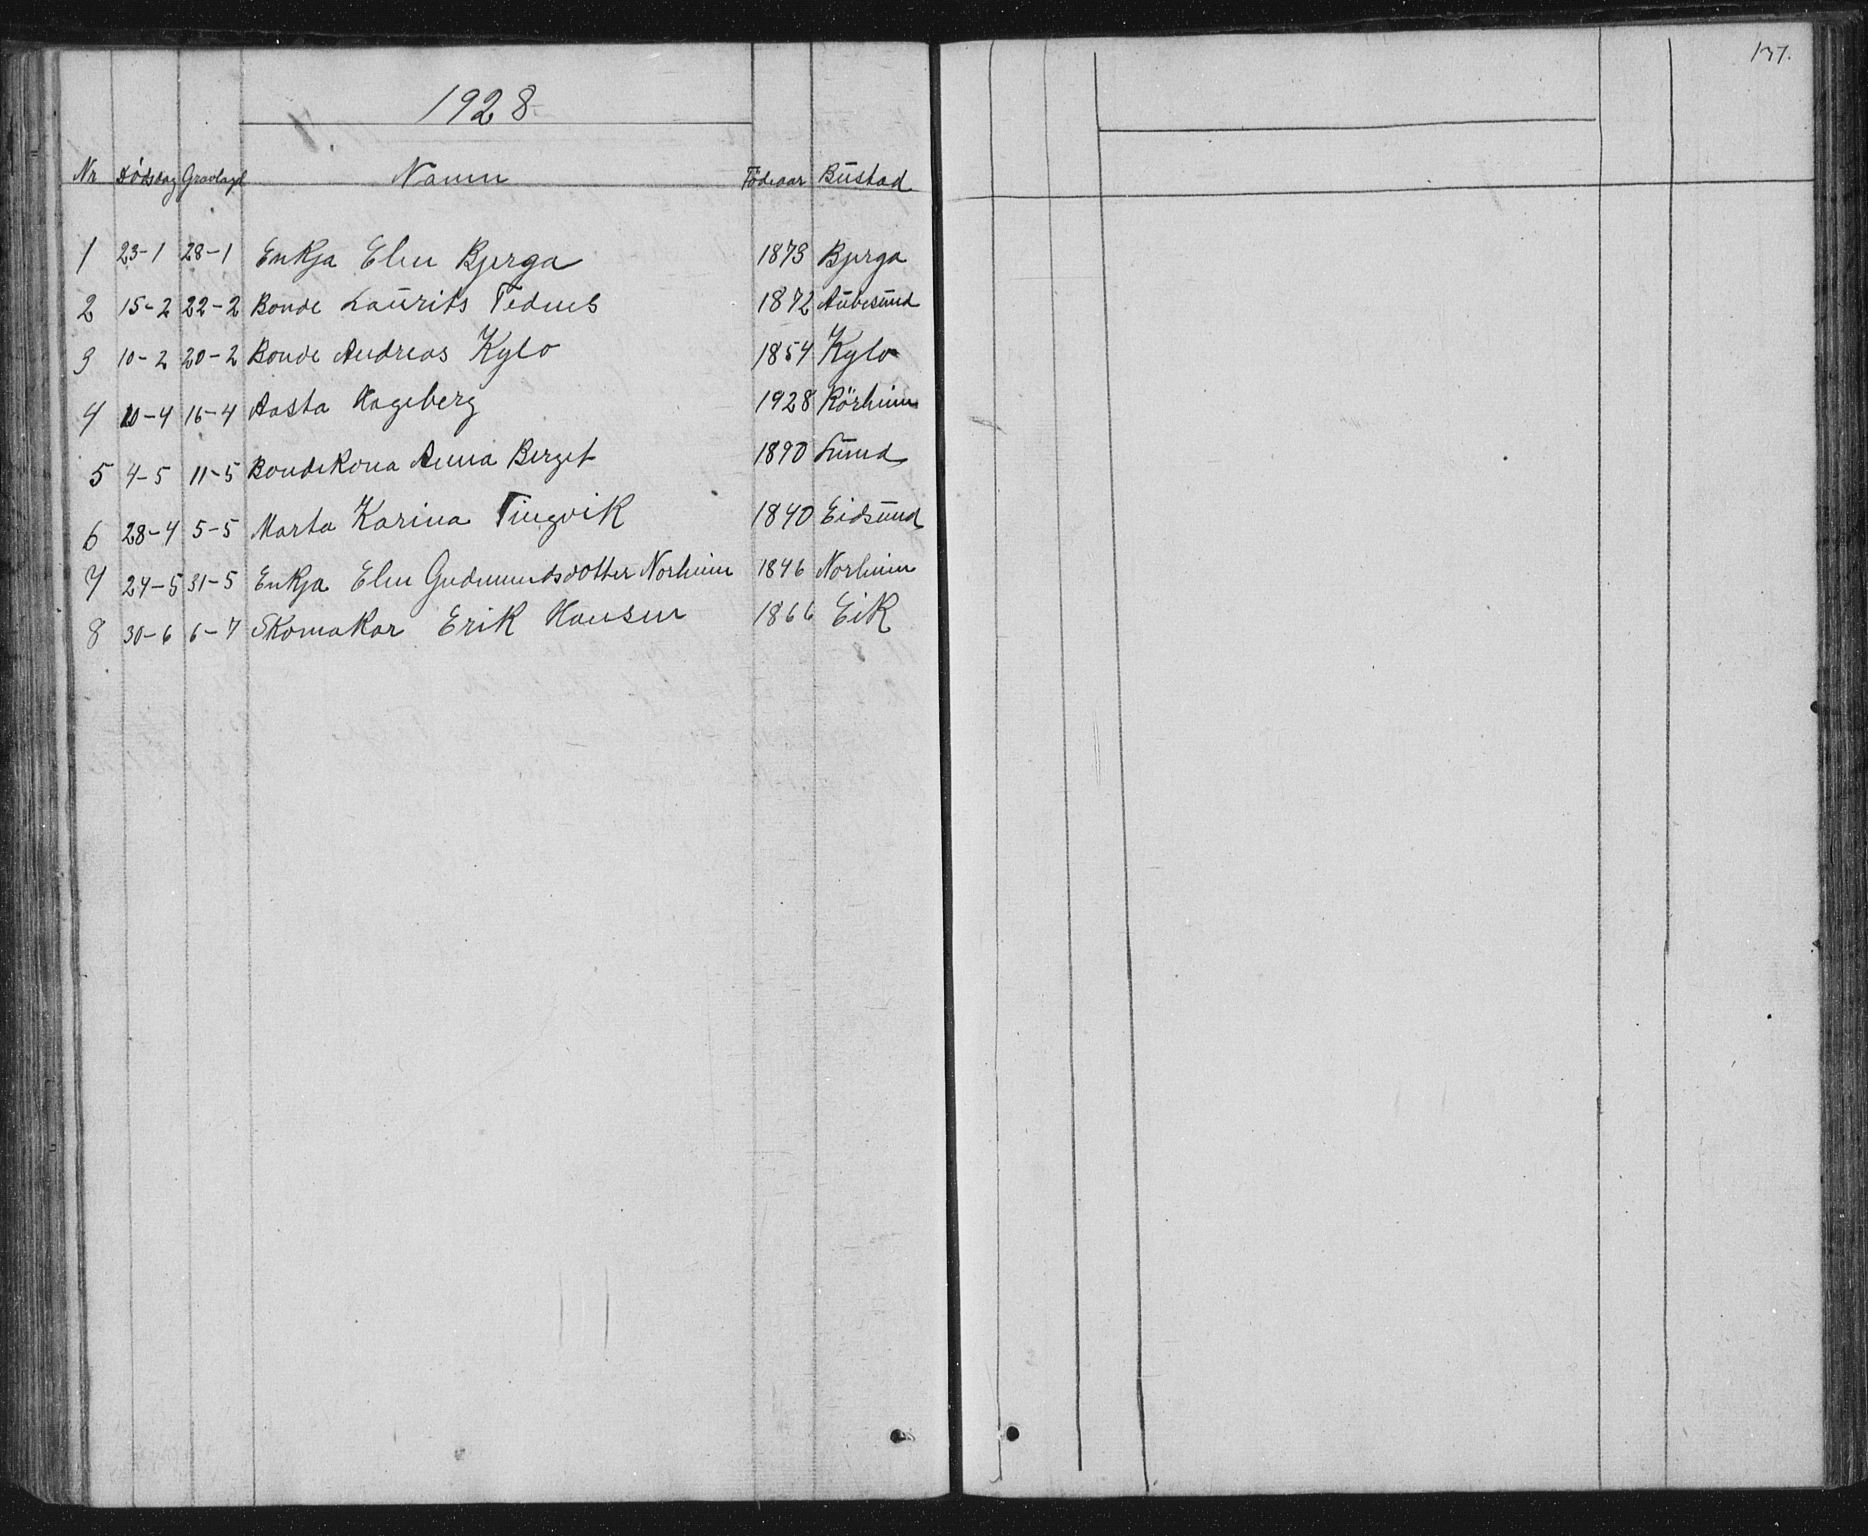 137.
1928
Nr Dödsdag Gravlagd Namn Födeaar Bustad
1 23-1 28-1 Enkja Elen Bjerga 1873 Bjerga
2 15-2 22-2 Bonde Laurits Tednes 1872 Aubesund
3 10-2 20-2 Bonde Andreas Kylo 1854 Kylo
4 10-4 16-4 Aasta Hageberg 1928 Rörheim
5 4-5 11-5 Bondekona Anna Berget 1890 Sund
6 28-4 5-5 Marta Karina Tingvik 1840 Eidsund
7 24-5 31-5 Enkja Elen Gudmundsdotter Norheim 1846 Norheim
8 30-6 6-7 Skomakar Erik Hansen 1866 Eik